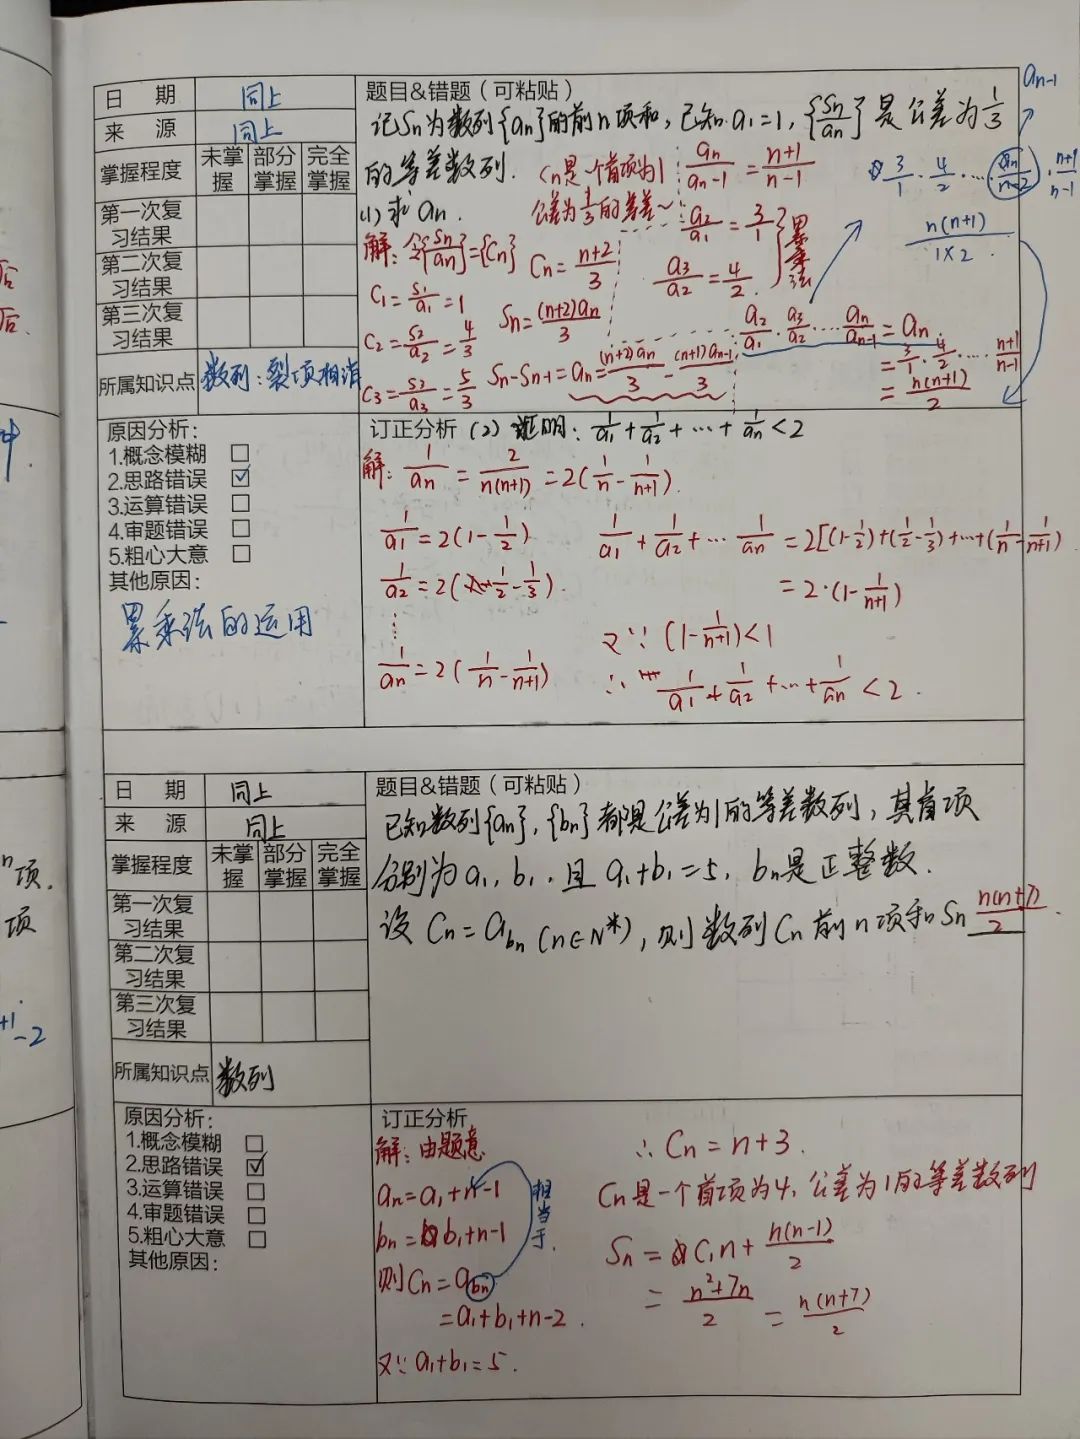 日 期 同上
来 源 同上
掌握程度 未掌握 部分掌握 完全掌握
第一次复习结果
第二次复习结果
第三次复习结果
所属知识点 数列：裂项相消
题目&错题（可粘贴）
记Sn为数列{an}的前n项和，已知a1=1，{Sn/an}是公差为1/3
的等差数列.
(1)求an.
Cn是一个首项为1
公差为1/3的等差~
解：令{Sn/an}={Cn}
C1=S1/a1=1
C2=S2/a2=4/3
C3=S3/a3=5/3
Cn=(n+2)/3
Sn=(n+2)an/3
Sn-Sn-1=an=(n+2)an/3-(n+1)an-1/3
an/an-1=(n+1)/(n-1)
a2/a1=3/1
a3/a2=4/2
累乘法
a2/a1·a3/a2·…·an/an-1=an
=3/1·4/2·…·(n+1)/(n-1)
=n(n+1)/2
an-1
3/1·4/2·…·an/(n-2)·(n+1)/(n-1)
n(n+1)/1×2
原因分析：
1.概念模糊 □
2.思路错误 ☑
3.运算错误 □
4.审题错误 □
5.粗心大意 □
其他原因：
累乘法的运用
订正分析 (2)证明：1/a1+1/a2+…+1/an<2
解：1/an=2/n(n+1)=2(1/n-1/(n+1)).
1/a1=2(1-1/2)
1/a2=2(1/2-1/3).
⋮
1/an=2(1/n-1/(n+1))
1/a1+1/a2+…1/an=2[(1-1/2)+(1/2-1/3)+…+(1/n-1/(n+1))
=2·(1-1/(n+1))
又∵(1-1/(n+1))<1
∴1/a1+1/a2+…+1/an<2.
日 期 同上
来 源 同上
掌握程度 未掌握 部分掌握 完全掌握
第一次复习结果
第二次复习结果
第三次复习结果
所属知识点 数列
题目&错题（可粘贴）
已知数列{an},{bn}都是公差为1的等差数列，其首项
分别为a1,b1,且a1+b1=5,bn是正整数.
设Cn=a_bn(n∈N*),则数列Cn前n项和Sn n(n+7)/2.
原因分析：
1.概念模糊 □
2.思路错误 ☑
3.运算错误 □
4.审题错误 □
5.粗心大意 □
其他原因：
订正分析
解：由题意
an=a1+n-1
bn=b1+n-1
则Cn=a_bn
=a1+b1+n-2.
又∵a1+b1=5.
相当于.
∴Cn=n+3.
Cn是一个首项为4,公差为1的等差数列
Sn=C1n+n(n-1)/2
=(n²+7n)/2=n(n+7)/2
后
后.
中.
n项.
项
+1-2